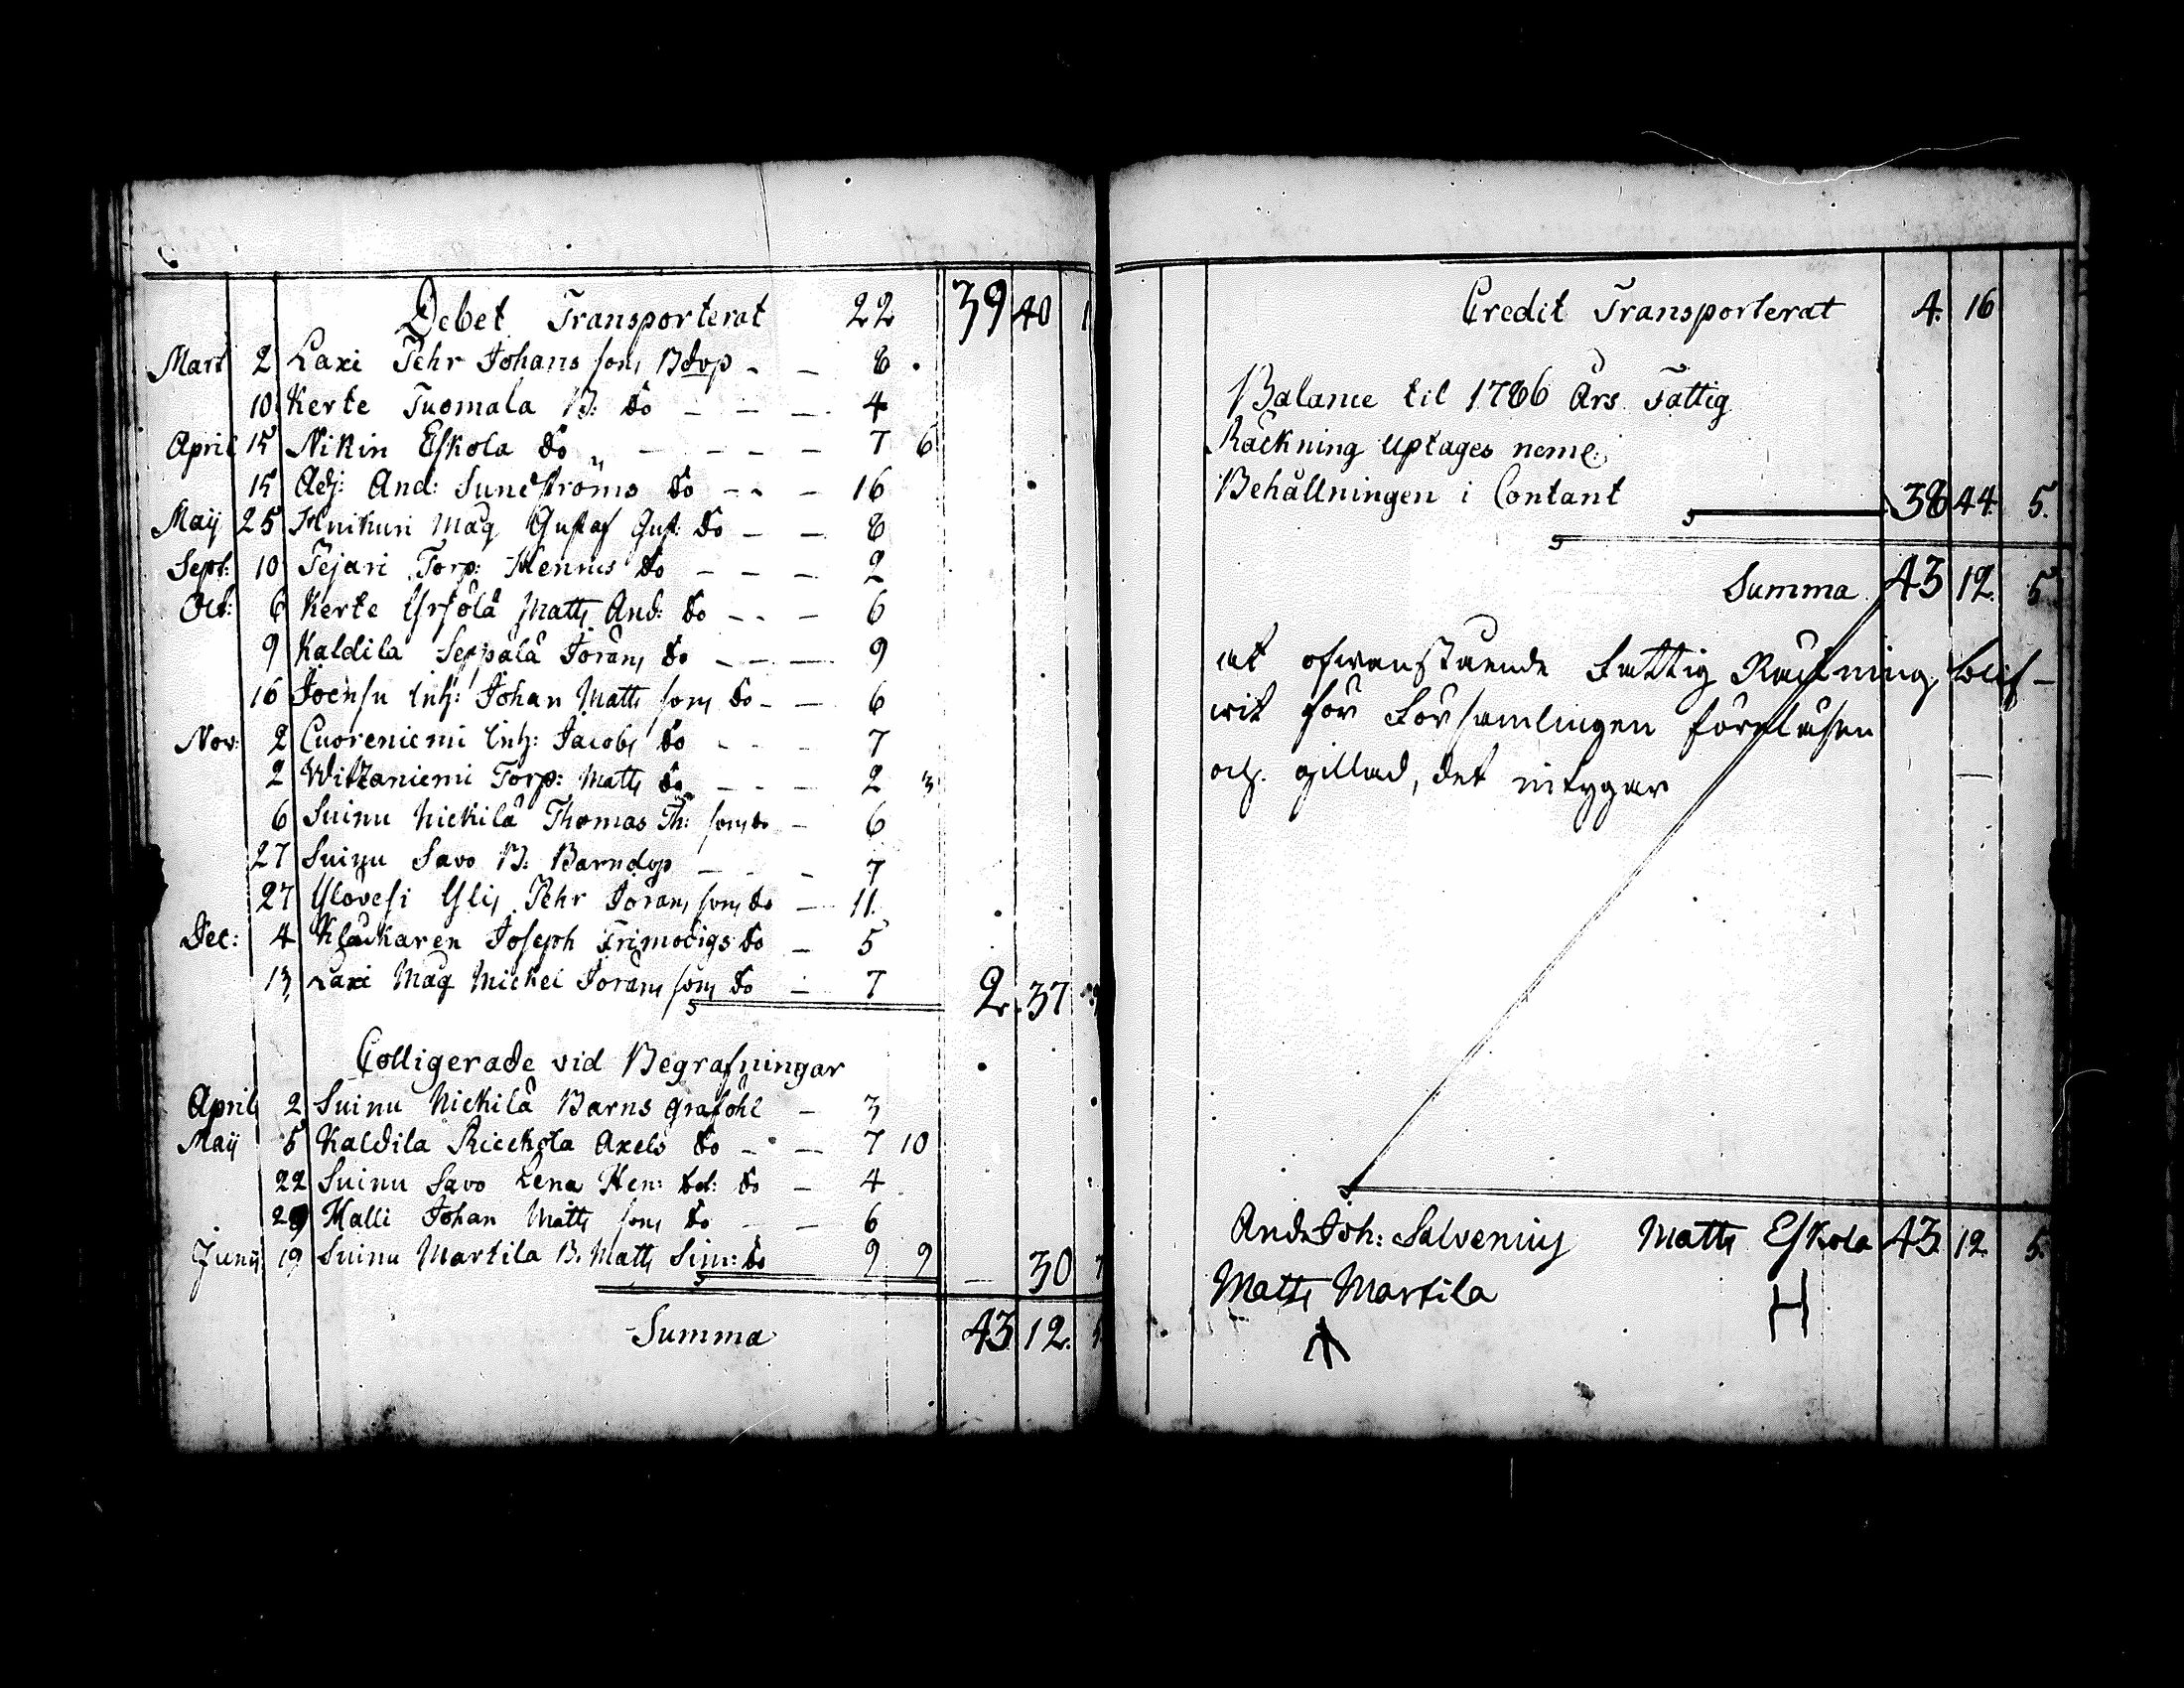 Debet Transporterat 22 39 40 1
Mart 2 Laxi Pehr Johans sons Bdop - - 8 .
10 Kerte Tuomala B: do - - - 4
April 15 Nikin Eskola do „ - - - - 7 6
15 Adj: And: Sundströms do - - - 16
Maij 25 Knihuri Mag Gustaf Gust: do - - 8
Sept: 10 Tejari Torp: Hennes do - - - 2
Oct: 6 Kerte Yrjölä Matts And: do - - - 6
9 Kaldila Seppälä Jörans do - - - 9
16 Joensu Inh: Johan Matts sons do - - 6
Nov: 2 Cuoreniemi Inh: Jacobs do - - - 7
2 Witzaniemi Torp: Matts do - - - 2 3
6 Suinu Nickilä Thomas Th: sons do - 6
27 Suinu Savo B: Barndop - - - 7
27 Ylövesi Ylis Pehr Jörans sons do - 11.
Dec: 4 Kläckaren Joseph Trimodigs do - 5
13 Laxi Mag Mickel Jörans sons do - 7 2. 37
Colligerade vid Begrafningar
April 2 Suinu Nickilä Barns graföhl - 3
Maij 5 Kaldila Rieckola Axels do - - 7 10
22 Suinu Savo Lena Hen: dot: do - 4
29 Halli Johan Matts sons do - - 6
Junij 19 Suinu Martila B. Matts Sim: do 9 9 — 30
Summa 43 12.
Credit Transporterat 4. 16
Balance til 1786 Års Fattig
Räckning uptages neml:
Behållningen i Contant 38 44. 5.
Summa 43 12. 5
at ofwanstående Fattig Räckning blif-
wit för Församlingen föreläsen
och gillad, det intygar
And: Joh: Salvenius Matts Eskola 43 12. 5.
Matts Martila H